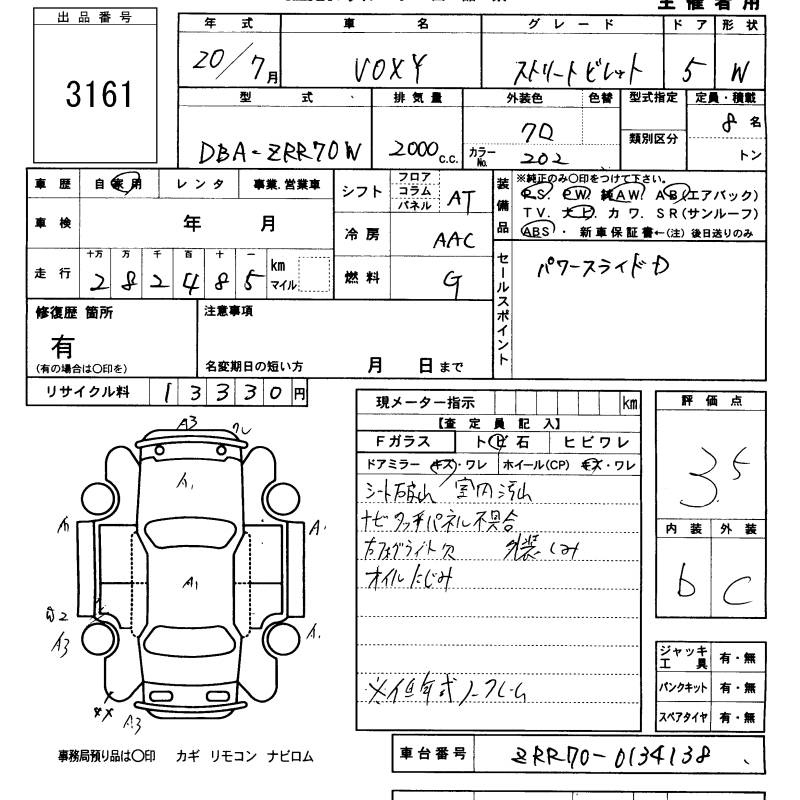 主催者用
出品番号
3161
年式 車名 グレード ドア 形状
20/7月 VOXY ストリートビレット 5 W
型式 排気量 外装色 色替 型式指定 定員・積載
DBA-ZRR70W 2000c.c. カラーNo. 202 類別区分 8名
トン
車歴 自家用 レンタ 事業.営業車
車検 年 月
走行 十万 万 千 百 十 一
282485 km マイル
シフト フロア コラム パネル AT
冷房 AAC
燃料 G
装備品
※純正のみ〇印をつけて下さい。
P.S. P.W. 純AW. AB(エアバック)
T V. ナビ カワ. SR(サンルーフ)
ABS ・ 新車保証書←(注)後日送りのみ
セールスポイント
パワースライドD
修復歴 箇所
有
(有の場合は〇印を)
注意事項
名変期日の短い方 月 日まで
リサイクル料 13330円
現メーター指示 km
【査定員記入】
Fガラス トビ石 ヒビワレ
ドアミラー キズ・ワレ ホイール(CP) キズ・ワレ
シート破れ 室内汚れ
ナビタッチパネル不具合
オイルにじみ
評価点
3.5
内装 外装
b C
ジャッキ工具 有・無
パンクキット 有・無
スペアタイヤ 有・無
A3
A1
A1
A1
A1
A3
A3
事務局預り品は〇印 カギ リモコン ナビロム
車台番号 ZRR70-0134138